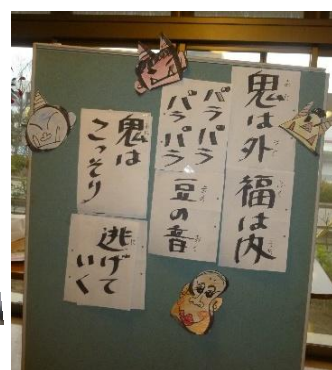 鬼は外
福は内
パラパラ
パラパラ
豆の音
鬼は
こっそり
逃げて
いく